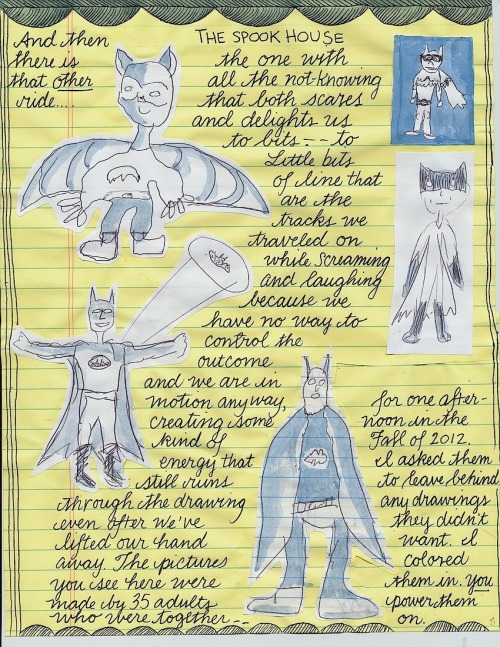 And then
there is
that other
ride....
THE SPOOK HOUSE
the one with
all the not-knowing
that both scares
and delights us
to bits -- to
Little bits
of line that
are the
tracks we
traveled on
while screaming
and laughing
because we
have no way to
control the
outcome
and we are in
motion anyway,
creating some
kind of
energy that
still runs
through the drawing
even after we've
lifted our hand
away. The pictures
you see here were
made by 35 adults
who were together --
for one after-
noon in the
Fall of 2012.
I asked them
to leave behind
any drawings
they didn't
want. I
colored
them in. You
power them
on.